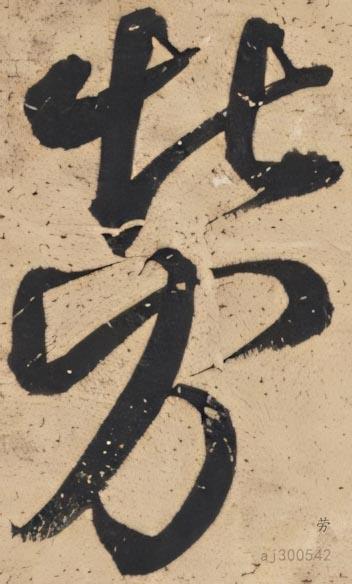 劳
劳
aj300542